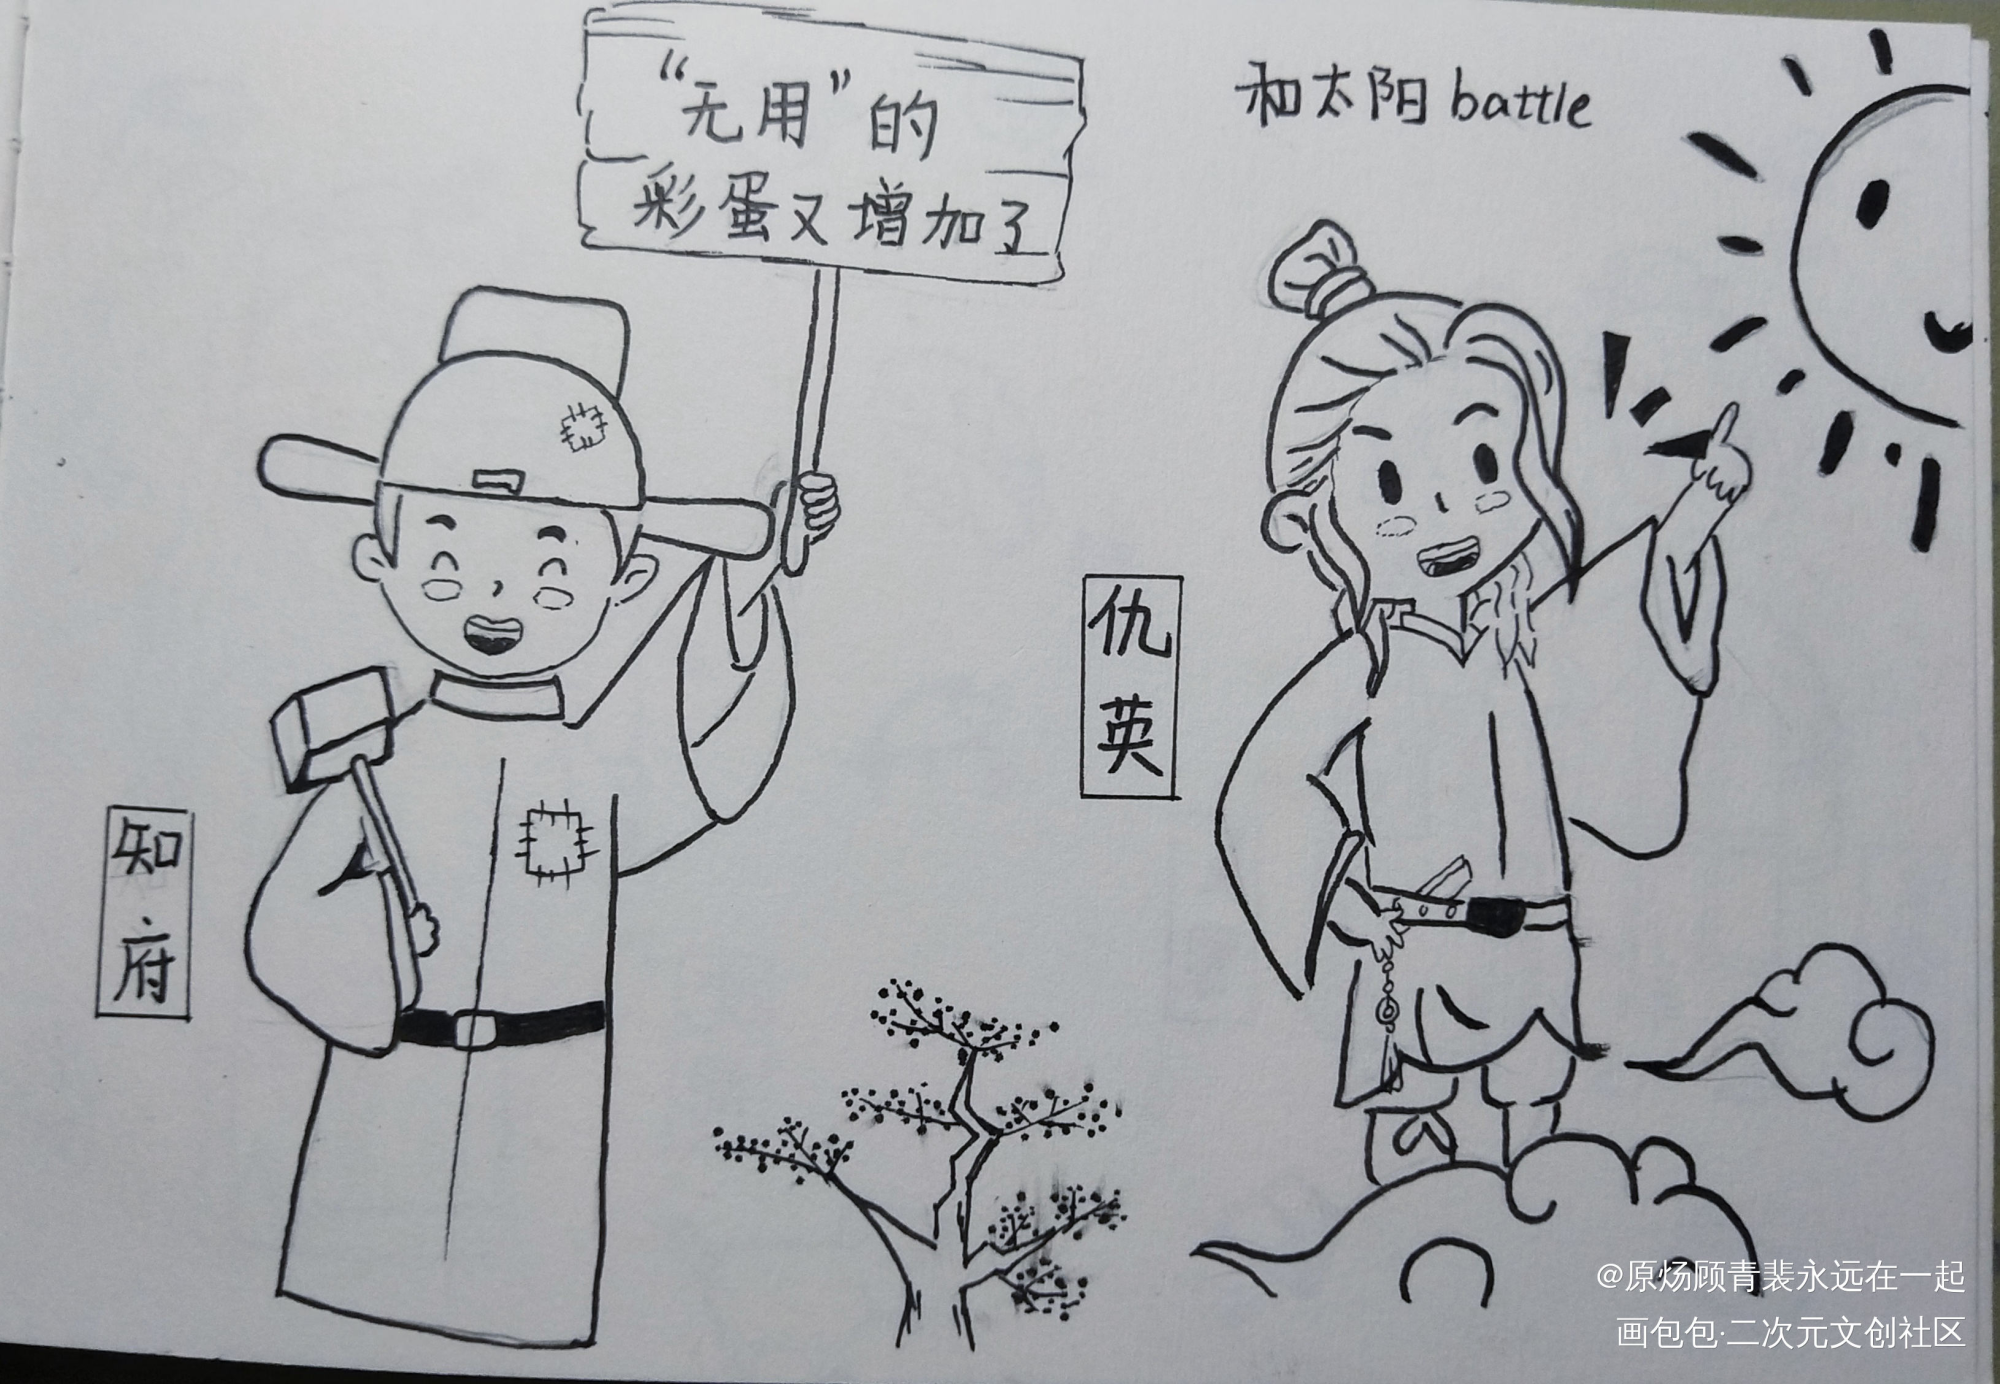 “无用”的
彩蛋又增加了
和太阳battle
仇英
知府
@原炀顾青裴永远在一起
画包包·二次元文创社区